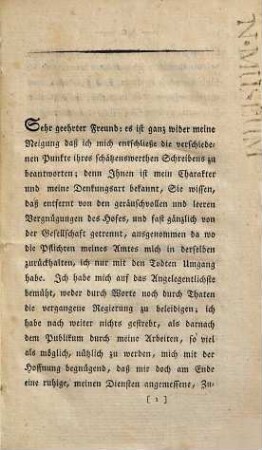 Sehr geehrter Freund: es ist ganz wider meine
Neigung daß ich mich entschließe die verschiede-
nen Punkte ihres schätzenswerthen Schreibens zu
beantworten; denn Ihnen ist mein Charakter
und meine Denkungsart bekannt, Sie wissen,
daß entfernt von den geräuschvollen und leeren
Vergnügungen des Hofes, und fast gänzlich von
der Gesellschaft getrennt, ausgenommen da wo
die Pflichten meines Amtes mich in derselben
zurückhalten, ich nur mit den Todten Umgang
habe. Ich habe mich auf das Angelegentlichste
bemüht, weder durch Worte noch durch Thaten
die vergangene Regierung zu beleidigen; ich
habe nach weiter nichts gestrebt, als darnach
dem Publikum durch meine Arbeiten, so viel
als möglich, nützlich zu werden, mich mit der
Hoffnung begnügend, daß mir doch am Ende
eine ruhige, meinen Diensten angemessene, Zu-
[ 1 ]
N. MUSEUM